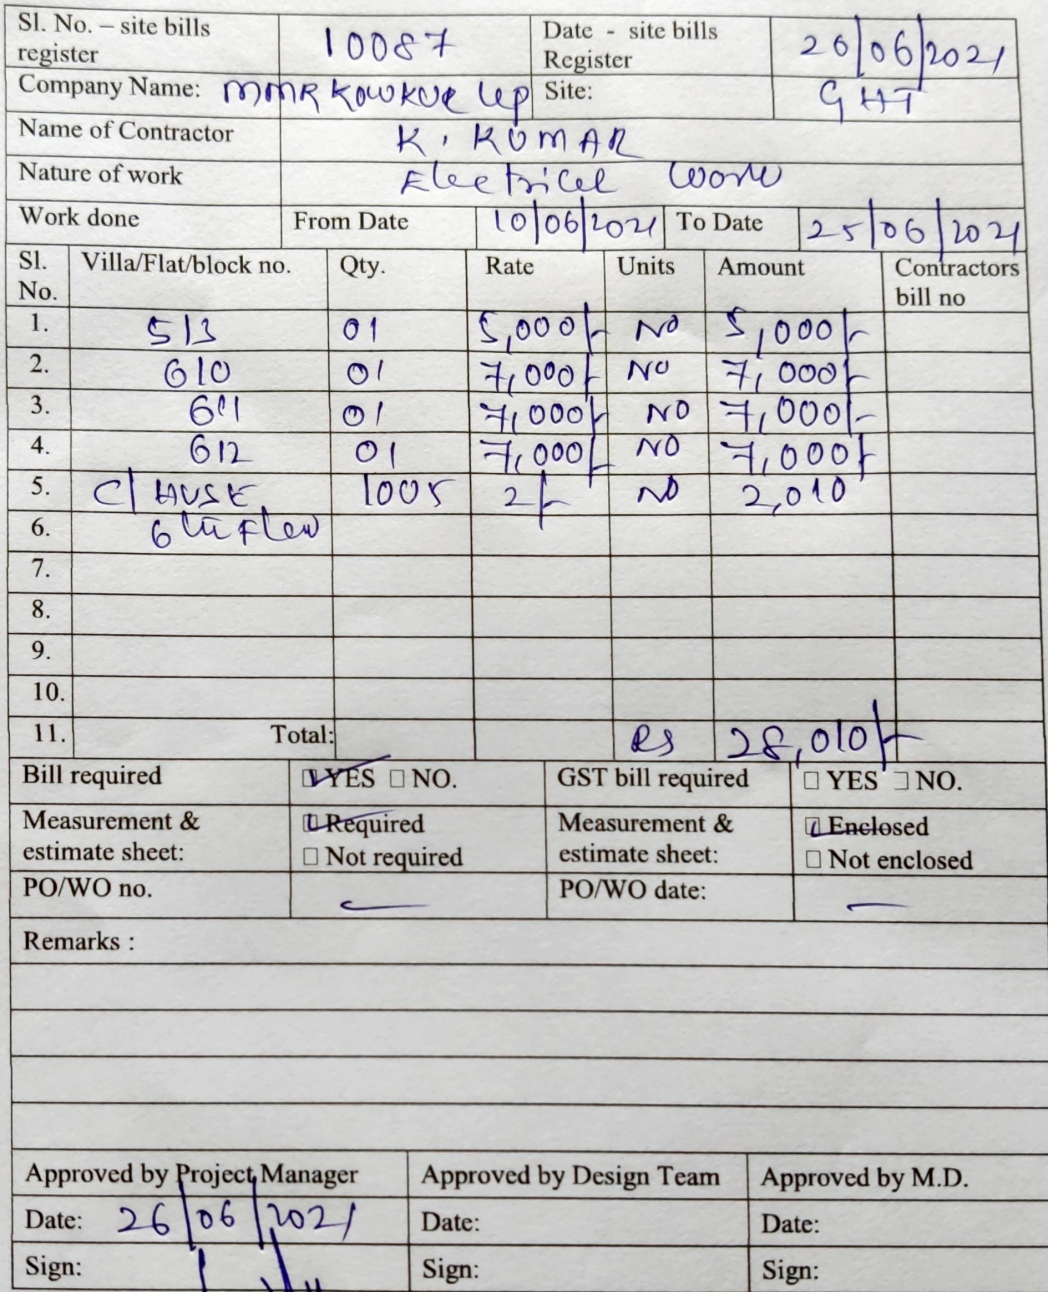 Sl. No. – site bills register 10087 Date - site bills Register 26/06/2021
Company Name: MMR KOWKUR LLP Site: GHT
Name of Contractor K. KUMAR
Nature of work Electricel work
Work done From Date 10/06/2021 To Date 25/06/2021
Sl. No. Villa/Flat/block no. Qty. Rate Units Amount Contractors bill no
1. 513 01 5,000/- NO 5,000/-
2. 610 01 7,000/- NO 7,000/-
3. 611 01 7,000/- NO 7,000/-
4. 612 01 7,000/- NO 7,000/-
5. C/HUSE 1005 2/- NO 2,010
6. 6th
7.
8.
9.
10.
11. Total: Rs 28,010/-
Bill required YES NO. GST bill required YES NO.
Measurement & estimate sheet: Required Measurement & estimate sheet: Enclosed
Not required Not enclosed
PO/WO no. — PO/WO date: —
Remarks :
Approved by Project Manager Approved by Design Team Approved by M.D.
Date: 26/06/2021 Date: Date:
Sign: Sign: Sign: